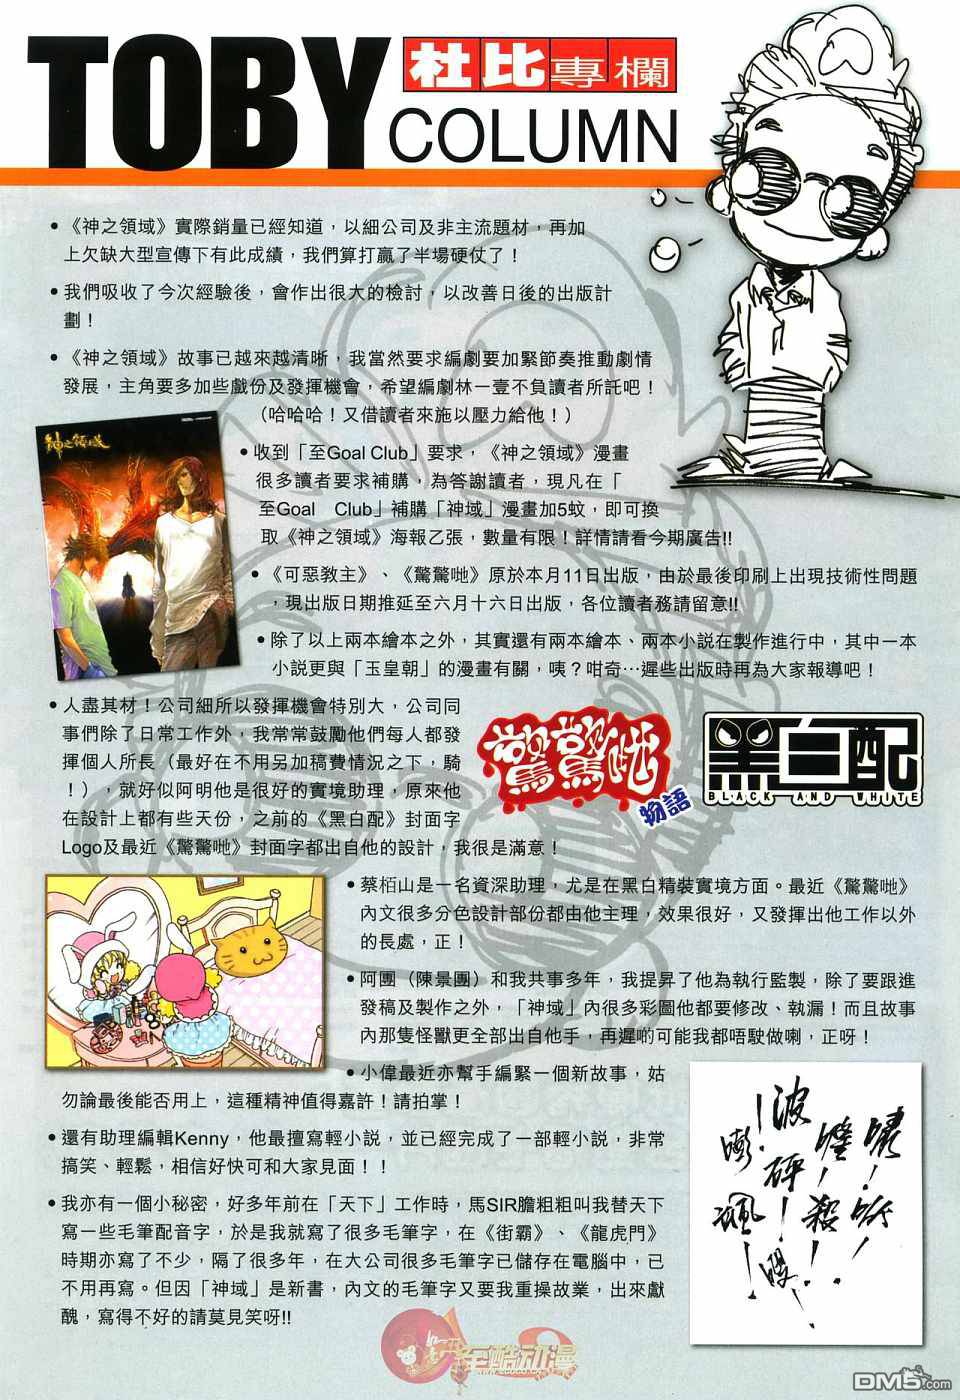 TOBY
杜比專欄
COLUMN
•《神之領域》實際銷量已經知道，以細公司及非主流題材，再加
上欠缺大型宣傳下有此成績，我們算打贏了半場硬仗了！
•我們吸收了今次經驗後，會作出很大的檢討，以改善日後的出版計
劃！
•《神之領域》故事已越來越清晰，我當然要求編劇要加緊節奏推動劇情
發展，主角要多加些戲份及發揮機會，希望編劇林一壹不負讀者所託吧！
（哈哈哈！又借讀者來施以壓力給他！）
神之領域
•收到「至Goal Club」要求，《神之領域》漫畫
很多讀者要求補購，為答謝讀者，現凡在「
至Goal Club」補購「神域」漫畫加5蚊，即可換
取《神之領域》海報乙張，數量有限！詳情請看今期廣告!!
•《可惡教主》、《驚驚哋》原於本月11日出版，由於最後印刷上出現技術性問題
，現出版日期推延至六月十六日出版，各位讀者務請留意!!
•除了以上兩本繪本之外，其實還有兩本繪本、兩本小説在製作進行中，其中一本
小説更與「玉皇朝」的漫畫有關，咦？咁奇…遲些出版時再為大家報導吧！
•人盡其材！公司細所以發揮機會特別大，公司同
事們除了日常工作外，我常常鼓勵他們每人都發
揮個人所長（最好在不用另加稿費情況之下，騎
！），就好似阿明他是很好的實境助理，原來他
在設計上都有些天份，之前的《黑白配》封面字
Logo及最近《驚驚哋》封面字都出自他的設計，我很是滿意！
驚驚哋
物語
黑白配
BLACK AND WHITE
•蔡栢山是一名資深助理，尤是在黑白精裝實境方面。最近《驚驚哋》
內文很多分色設計部份都由他主理，效果很好，又發揮出他工作以外
的長處，正！
•阿團（陳景團）和我共事多年，我提昇了他為執行監製，除了要跟進
發稿及製作之外，「神域」內很多彩圖他都要修改、執漏！而且故事
內那隻怪獸更全部出自他手，再遲啲可能我都唔駛做喇，正呀！
•小偉最近亦幫手編緊一個新故事，姑
勿論最後能否用上，這種精神值得嘉許！請拍掌！
•還有助理編輯Kenny，他最擅寫輕小説，並已經完成了一部輕小説，非常
搞笑、輕鬆，相信好快可和大家見面！！
•我亦有一個小秘密，好多年前在「天下」工作時，馬SIR膽粗粗叫我替天下
寫一些毛筆配音字，於是我就寫了很多毛筆字，在《街霸》、《龍虎門》
時期亦寫了不少，隔了很多年，在大公司很多毛筆字已儲存在電腦中，已
不用再寫。但因「神域」是新書，內文的毛筆字又要我重操故業，出來獻
醜，寫得不好的請莫見笑呀!!
年酷动漫
DM5.com